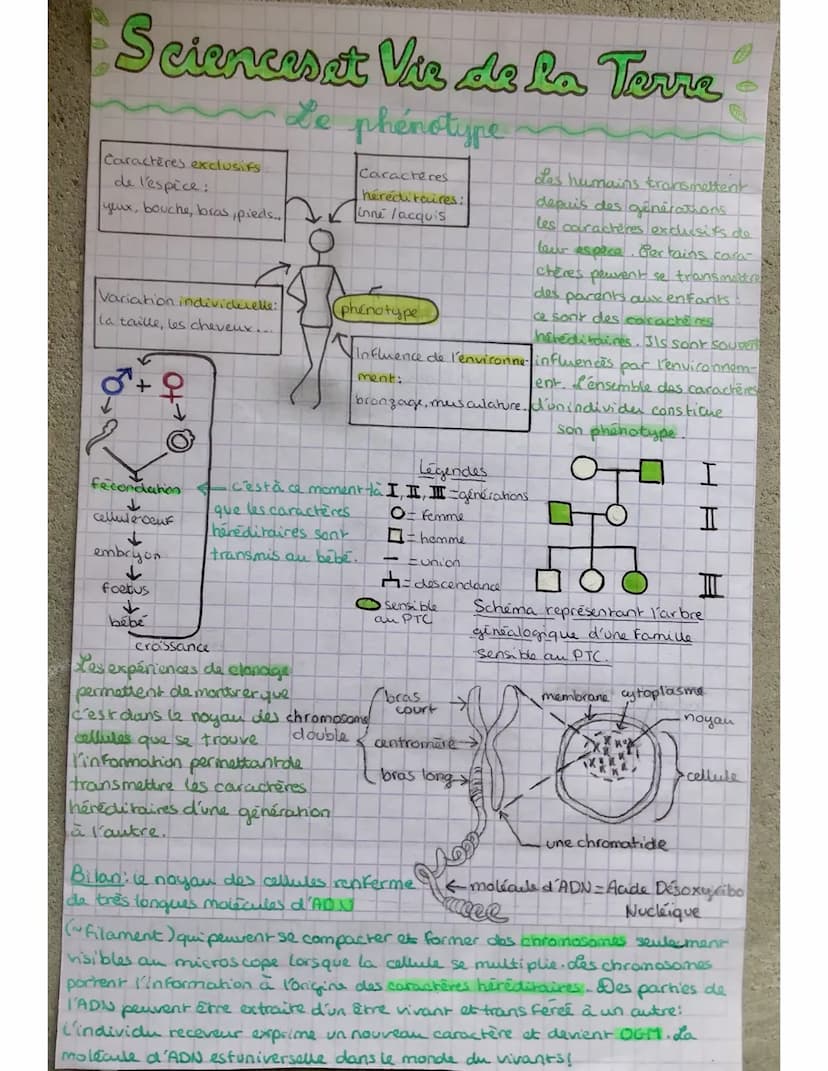 Sciences et Vie de la Terre
Le phénotype
Caractères exclusifs
de l'espèce :
yeux, bouche, bras, pieds...
Caractères
héréditaires :
inné / acquis
Variation individuelle :
la taille, les cheveux...
phénotype
Influence de l'environne-
ment :
bronzage, musculature.
Les humains transmettent
depuis des générations
les caractères exclusifs de
leur espèce. Certains cara-
ctères peuvent se transmettre
des parents aux enfants :
ce sont des caractères
héréditaires. Ils sont souvent
influencés par l'environnem-
ent. L'ensemble des caractères
d'un individu constitue
son phénotype.
♂ + ♀
fécondation
cellule-oeuf
embryon
foetus
bébé
croissance
c'est à ce moment-là
que les caractères
héréditaires sont
transmis au bébé.
Légendes
I, II, III = générations
= femme
= homme
= union
= descendance
sensible
au PTC
I
II
III
Schéma représentant l'arbre
généalogique d'une famille
sensible au PTC.
Les expériences de clonage
permettent de montrer que
c'est dans le noyau des
cellules que se trouve
l'information permettant de
transmettre les caractères
héréditaires d'une génération
à l'autre.
chromosome
double
bras
court
centromère
bras long
membrane
cytoplasme
noyau
cellule
une chromatide
molécule d'ADN = Acide Désoxyribo
Nucléique
Bilan : le noyau des cellules renferme
de très longues molécules d'ADN
(~ filament) qui peuvent se compacter et former des chromosomes seulement
visibles au microscope lorsque la cellule se multiplie. Les chromosomes
portent l'information à l'origine des caractères héréditaires. Des parties de
l'ADN peuvent être extraite d'un être vivant et transféreé à un autre :
L'individu receveur exprime un nouveau caractère et devient OGM. La
molécule d'ADN est universelle dans le monde du vivants !